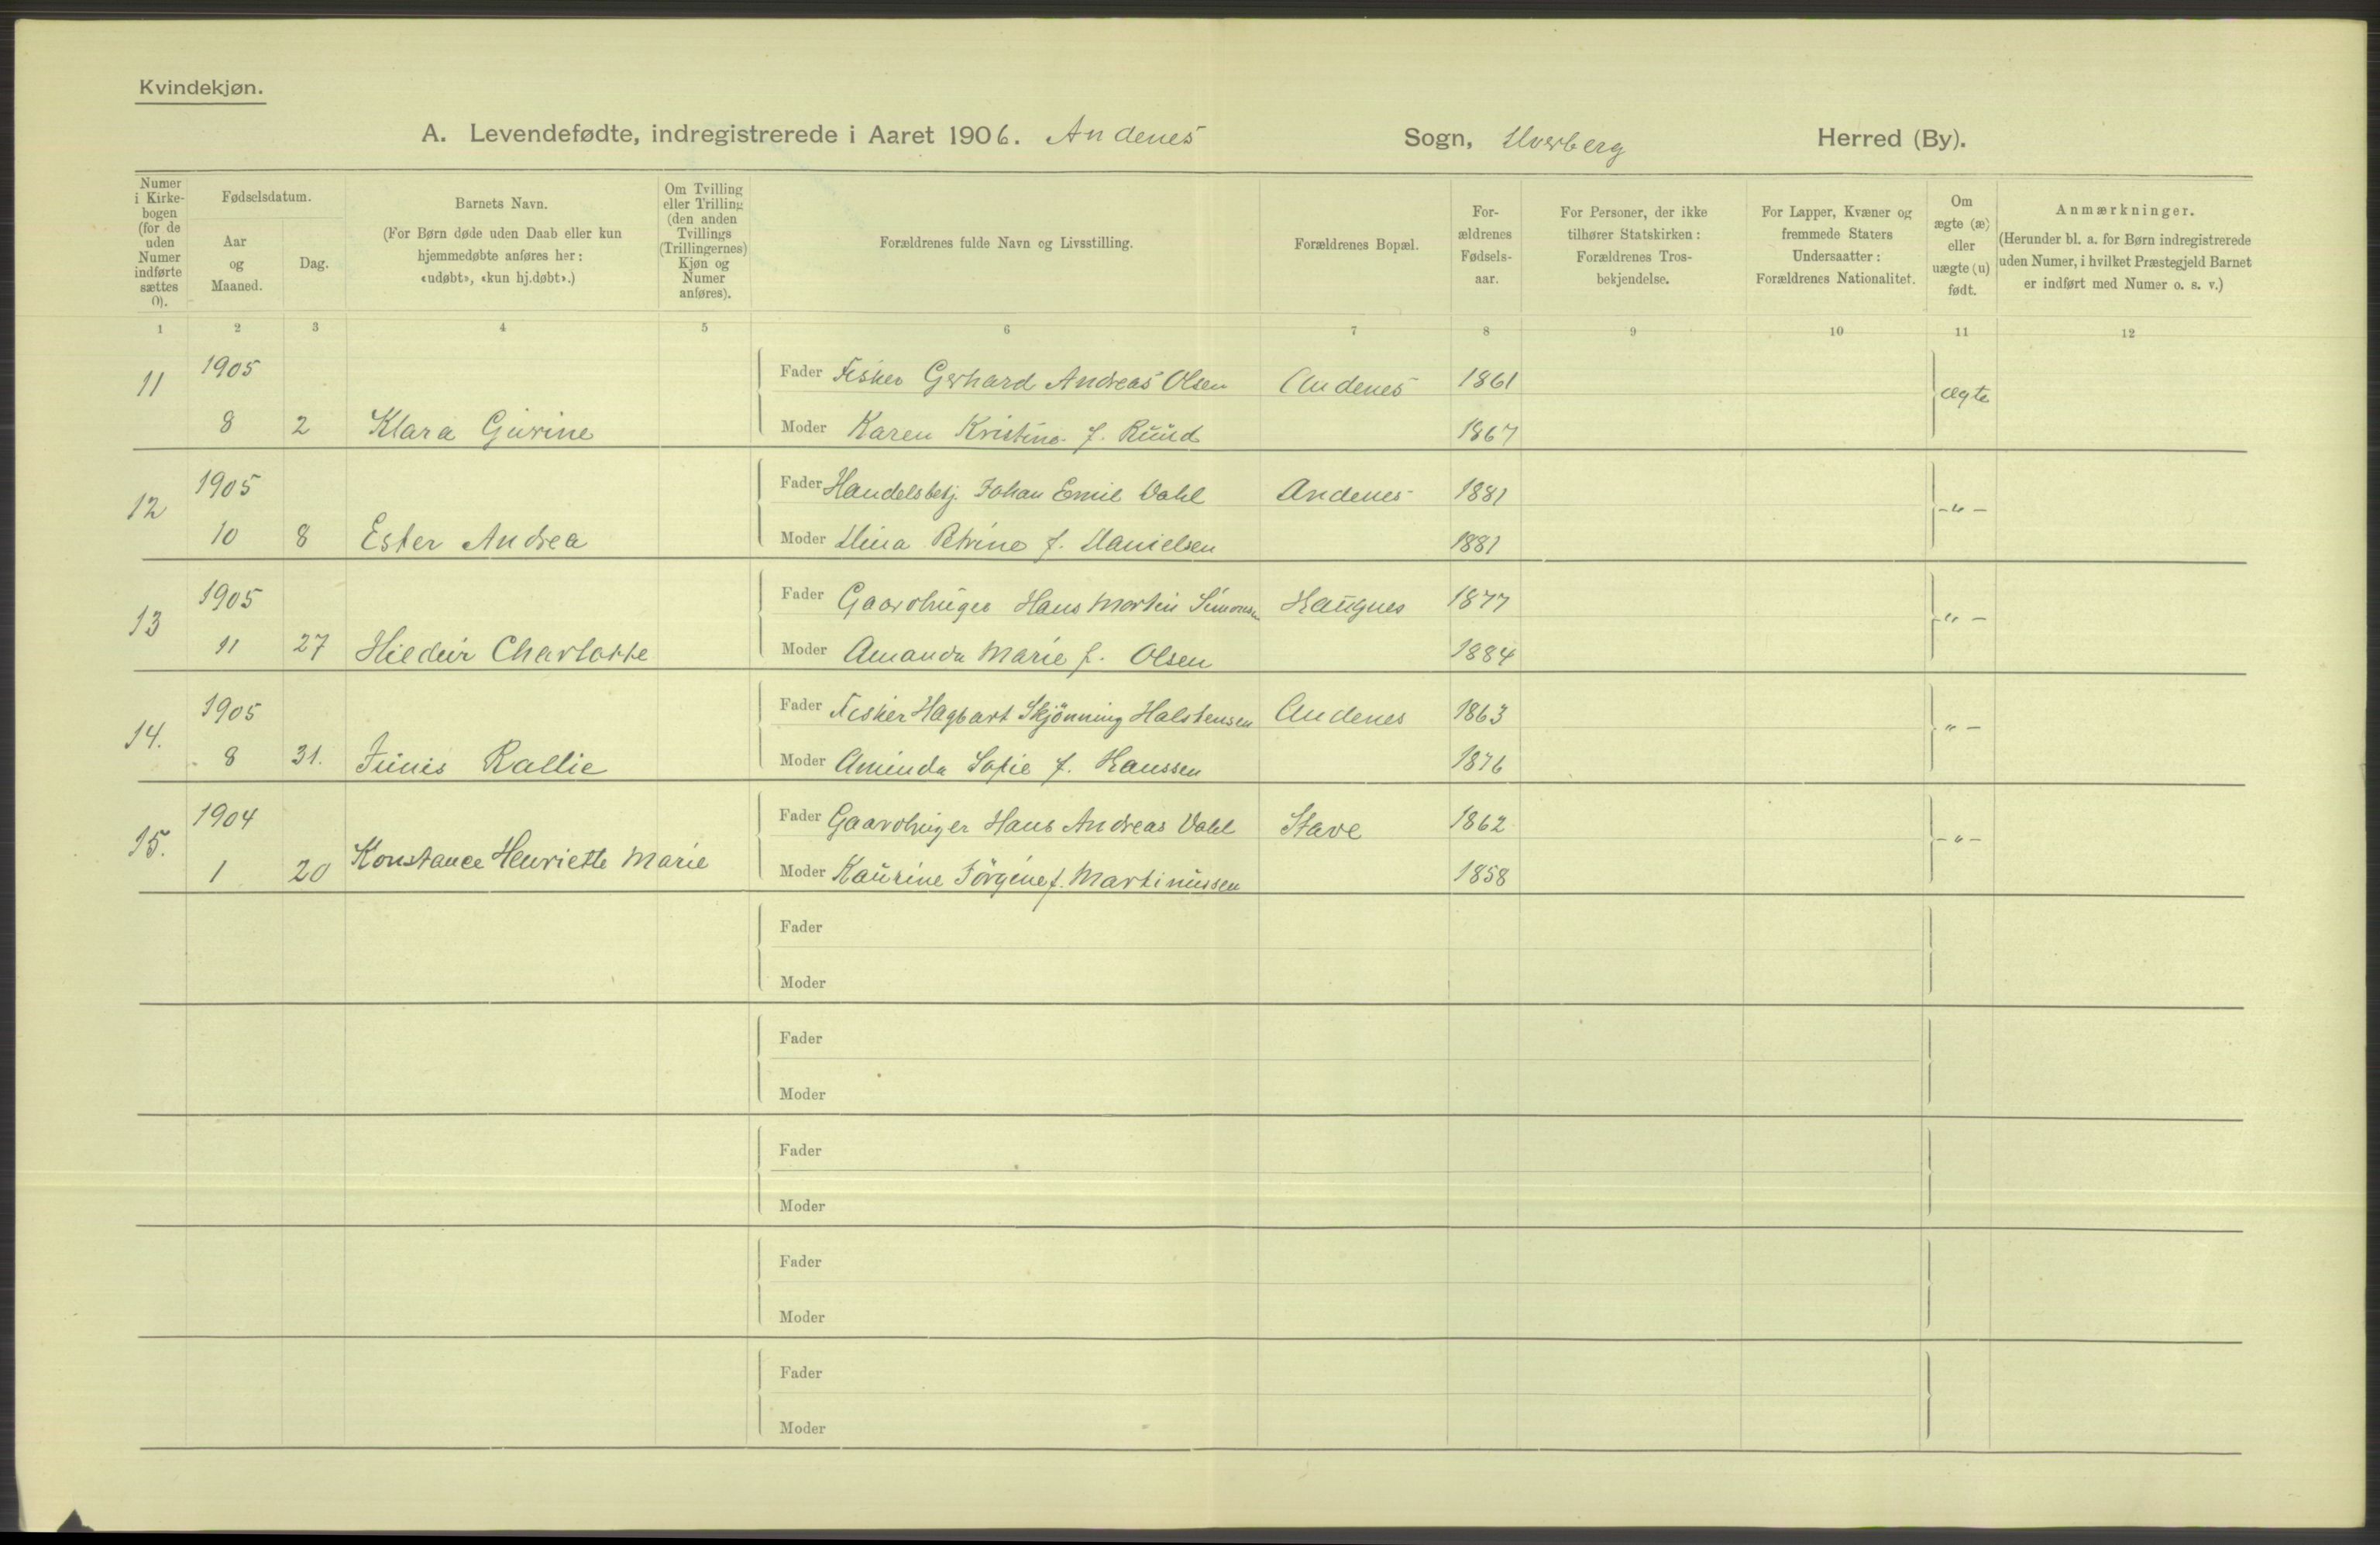 Kvindekjøn.
A. Levendefødte, indregistrerede i Aaret 1906. Andenes Sogn, Dverberg Herred (By).
Numer i Kirkebogen (for de uden Numer indførte sættes 0).
Fødselsdatum.
Aar og Maaned.
Dag.
Barnets Navn.
(For Børn døde uden Daab eller kun hjemmedøbte anføres her: «udøbt», «kun hj.døbt».)
Om Tvilling eller Trilling (den anden Tvillings (Trillingernes) Kjøn og Numer anføres).
Forældrenes fulde Navn og Livsstilling.
Forældrenes Bopæl.
For-ældrenes Fødsels-aar.
For Personer, der ikke tilhører Statskirken: Forældrenes Tros-bekjendelse.
For Lapper, Kvæner og fremmede Staters Undersaatter: Forældrenes Nationalitet.
Om ægte (æ) eller uægte (u) født.
Anmærkninger.
(Herunder bl. a. for Børn indregistrerede uden Numer, i hvilket Præstegjeld Barnet er indført med Numer o. s. v.)
1 2 3 4 5 6 7 8 9 10 11 12
11 1905 Fader Fisker Gerhard Andreas Olsen Andenes 1861 ægte
8 2 Klara Gurine Moder Karen Kristine f. Ruud 1867
12 1905 Fader Handelsbetj. Johan Emil Dahl Andenes 1881 -"-
10 8 Ester Andrea Moder Dina Petrine f. Danielsen 1881
13 1905 Fader Gaardbruger Hans Martin Simonsen Haugnes 1877 -"-
11 27 Hildur Charlotte Moder Amanda Marie f. Olsen 1884
14. 1905 Fader Fisker Hagbart Skjönning Halstensen Andenes 1863 "-
8 31. Moder Aminda Sofie f. Hanssen 1876
15. 1904 Fader Gaardbruger Hans Andreas Dahl Stave 1862 -"-
1 20 Konstance Henriette Marie Moder Kaurine Jörgine f. Martinussen 1858
Fader
Moder
Fader
Moder
Fader
Moder
Fader
Moder
Fader
Moder